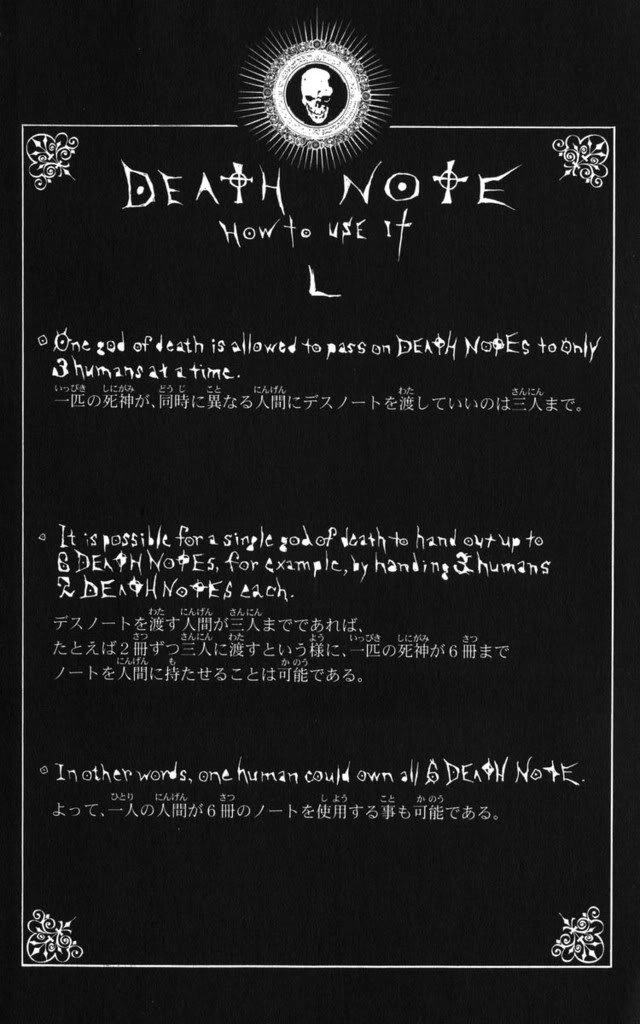 DEATH NOTE
HOW to USE It
L
One god of death is allowed to pass on DEATH NOTEs to only
3 humans at a time.
一匹の死神が、同時に異なる人間にデスノートを渡していいのは三人まで。
It is possible for a single god of death to hand out up to
6 DEATH NOTEs, for example, by handing 3 humans
2 DEATH NOTEs each.
デスノートを渡す人間が三人までであれば、
たとえば2冊ずつ三人に渡すという様に、一匹の死神が6冊まで
ノートを人間に持たせることは可能である。
In other words, one human could own all 6 DEATH NOTE.
よって、一人の人間が6冊のノートを使用する事も可能である。